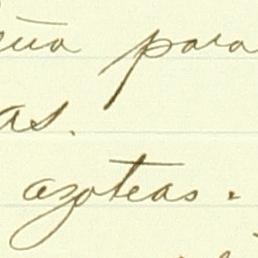 para
as.
azoteas.